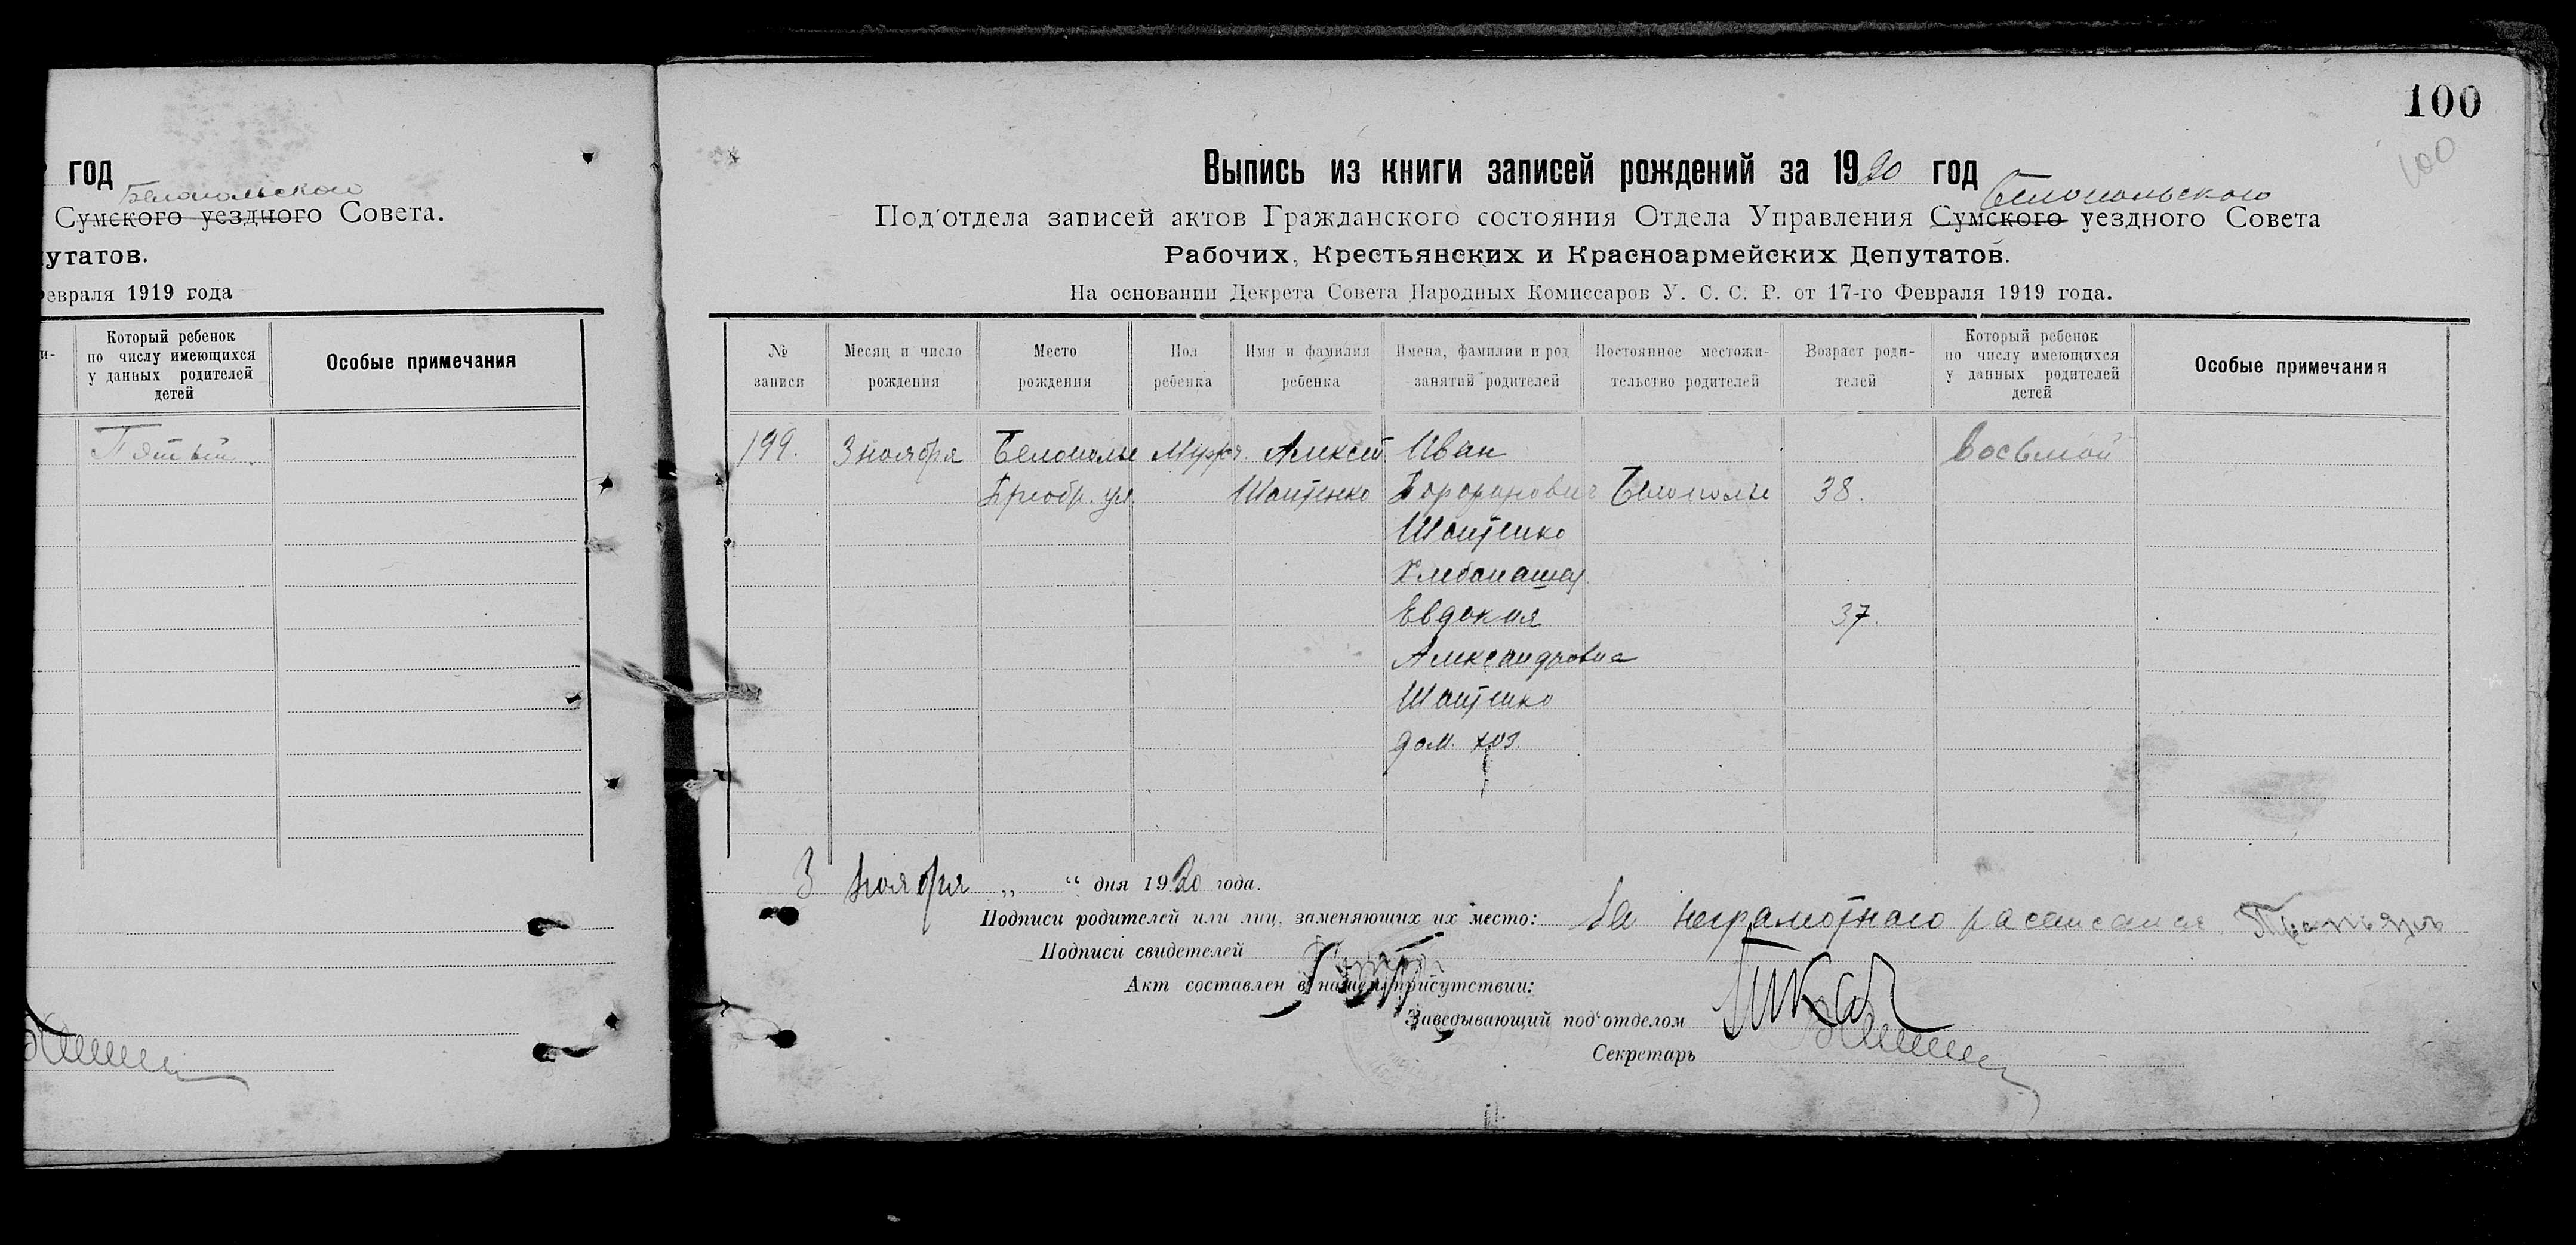 год
Белопольского
Сумского уездного Совета.
утатов.
евраля 1919 года
Который ребенок
по числу имеющихся
у данных родителей
детей
Особые примечания
Пятый
100
100
Выпись из книги записей рождений за 1920 год
Белопольского
Под'отдела записей актов Гражданского состояния Отдела Управления Сумского уездного Совета
Рабочих, Крестьянских и Красноармейских Депутатов.
На основании Декрета Совета Народных Комиссаров У. С. С. Р. от 17-го Февраля 1919 года.
№ записи
Месяц и число рождения
Место рождения
Пол ребенка
Имя и фамилия ребенка
Имена, фамилии и род занятий родителей
Постоянное местожительство родителей
Возраст родителей
Который ребенок по числу имеющихся у данных родителей детей
Особые примечания
199. 3 ноября Белополье Мужч. Алексей Иван восьмой
Преобр. ул Белополье 38.
Хлебопашец
Евдокия 37.
Александровна
дом. хоз.
3 ноября „ “ дня 1920 года.
Подписи родителей или лиц, заменяющих их место: За неграмотного расписался
Подписи свидетелей
Акт составлен в нашем присутствии:
Заведывающий под'отделом
Секретарь